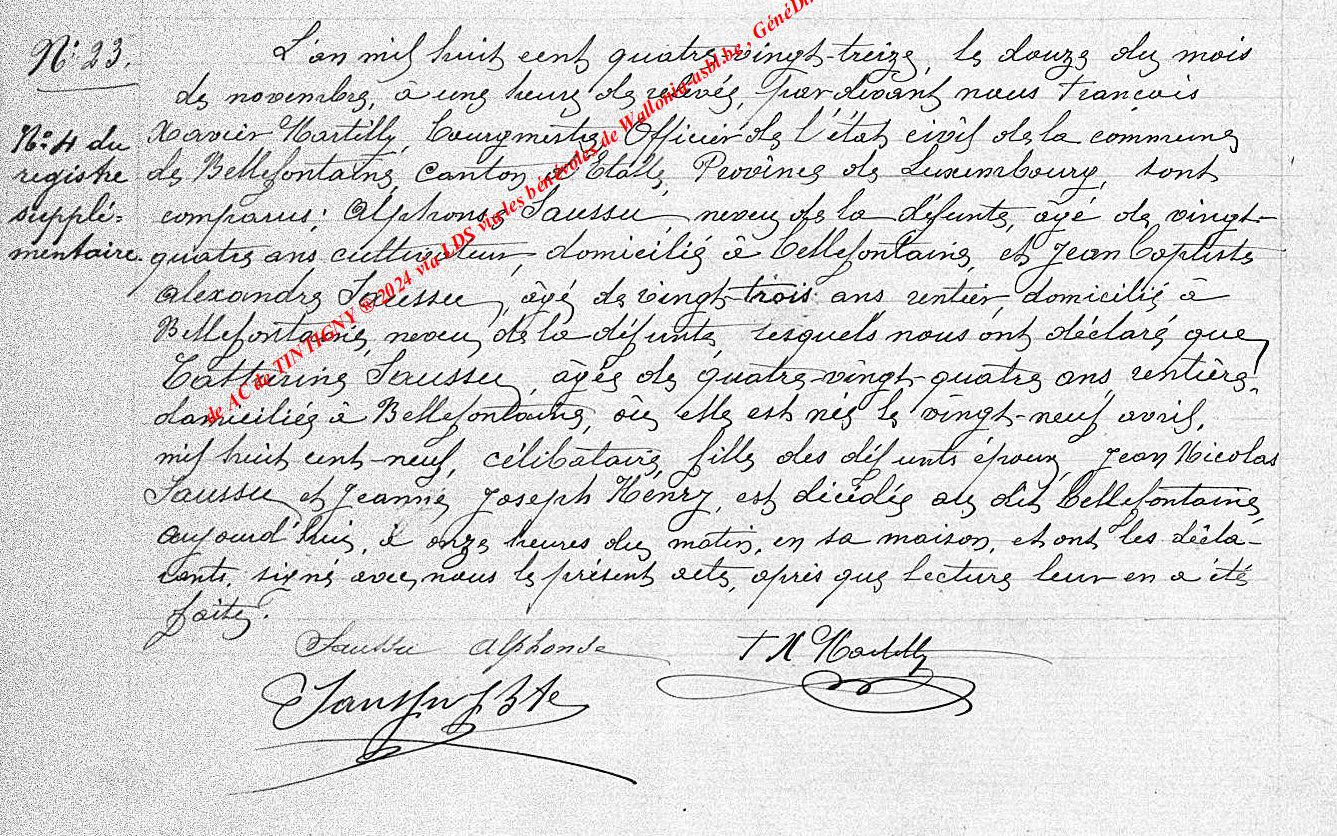 N° 23.
N° 4 du
registre
supplé-
mentaire.
L'an mil huit cent quatre vingt-treize, le douze du mois
de novembre, à une heure de relevée, Pardevant nous François
Xavier Martilly, bourgmestre Officier de l'état civil de la commune
de Bellefontaine, canton d'Etalle, Province de Luxembourg, sont
comparus: Alphonse Saussu, neveu de la défunte, âgé de vingt-
quatre ans cultivateur, domicilié à Bellefontaine, et Jean Baptiste
Alexandre Saussu, âgé de vingt-trois ans rentier domicilié à
Bellefontaine, neveu de la défunte, lesquels nous ont déclaré que
Catherine Saussu, âgée de quatre-vingt-quatre ans, rentière,
domiciliée à Bellefontaine, où elle est née le vingt-neuf avril,
mil huit cent-neuf, célibataire, fille des défunts époux, Jean Nicolas
Saussu et Jeanne Joseph Henry, est décédée au dit Bellefontaine,
aujourd'hui, à onze heures du matin, en sa maison, et ont les décla-
rants, signé avec nous le présent acte, après que lecture leur en a été
faite.
Saussu Alphonse
Martilly
Saussu Bte
de AC de TINTIGNY ® 2024 via LDS via les bénévoles de Wallonia-asbl.be, GénéDi